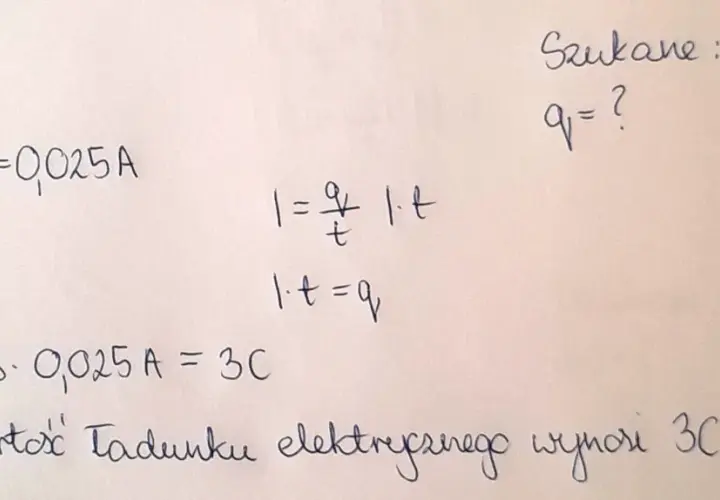 Szukane:
q = ?
=0,025A
I = q/t |·t
I·t = q
· 0,025A = 3C
rtość ładunku elektrycznego wynosi 3C